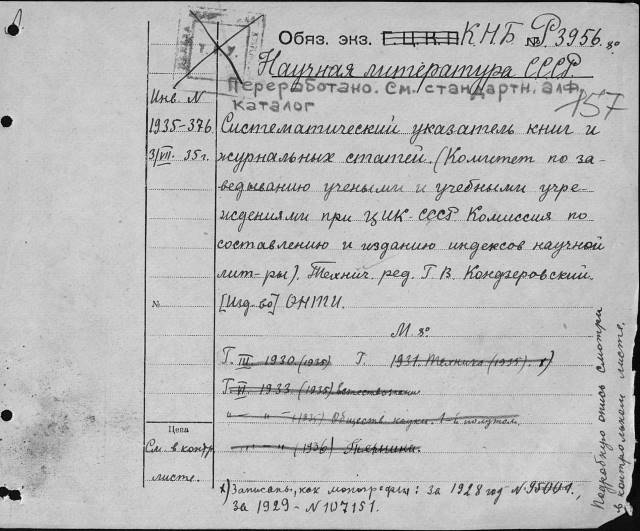 Обяз. экз. Г.Ц.К.П КНБ № Р3956. 8°
Научная литература СССР.
Переработано. См. стандартн. алф.
каталог
157
Инв. N
1935-376.
3/VII. 35 г.
Систематический указатель книг и
журнальных статей. (Комитет по за-
ведыванию учеными и учебными учре-
ждениями при ЦИК СССР Комиссия по
составлению и изданию индексов научной
лит-ры). Технич. ред. Г. В. Кондзеровский.
[Изд-во] ОНТИ.
№
М. 8°
Т. III 1930. (1935) Т. 1931. Техника (1935). x)
Т. VI 1933. (1935) Естествознан.
" — " — (1935) Обществ. науки. 1-й полутом.
" " — " (1936) Техника.
Цена
См. в контр.
листе.
x) Записаны, как монографии: за 1928 год N 95001.,
за 1929 - N 107151.
Подробную опись смотри
в контрольном листе.